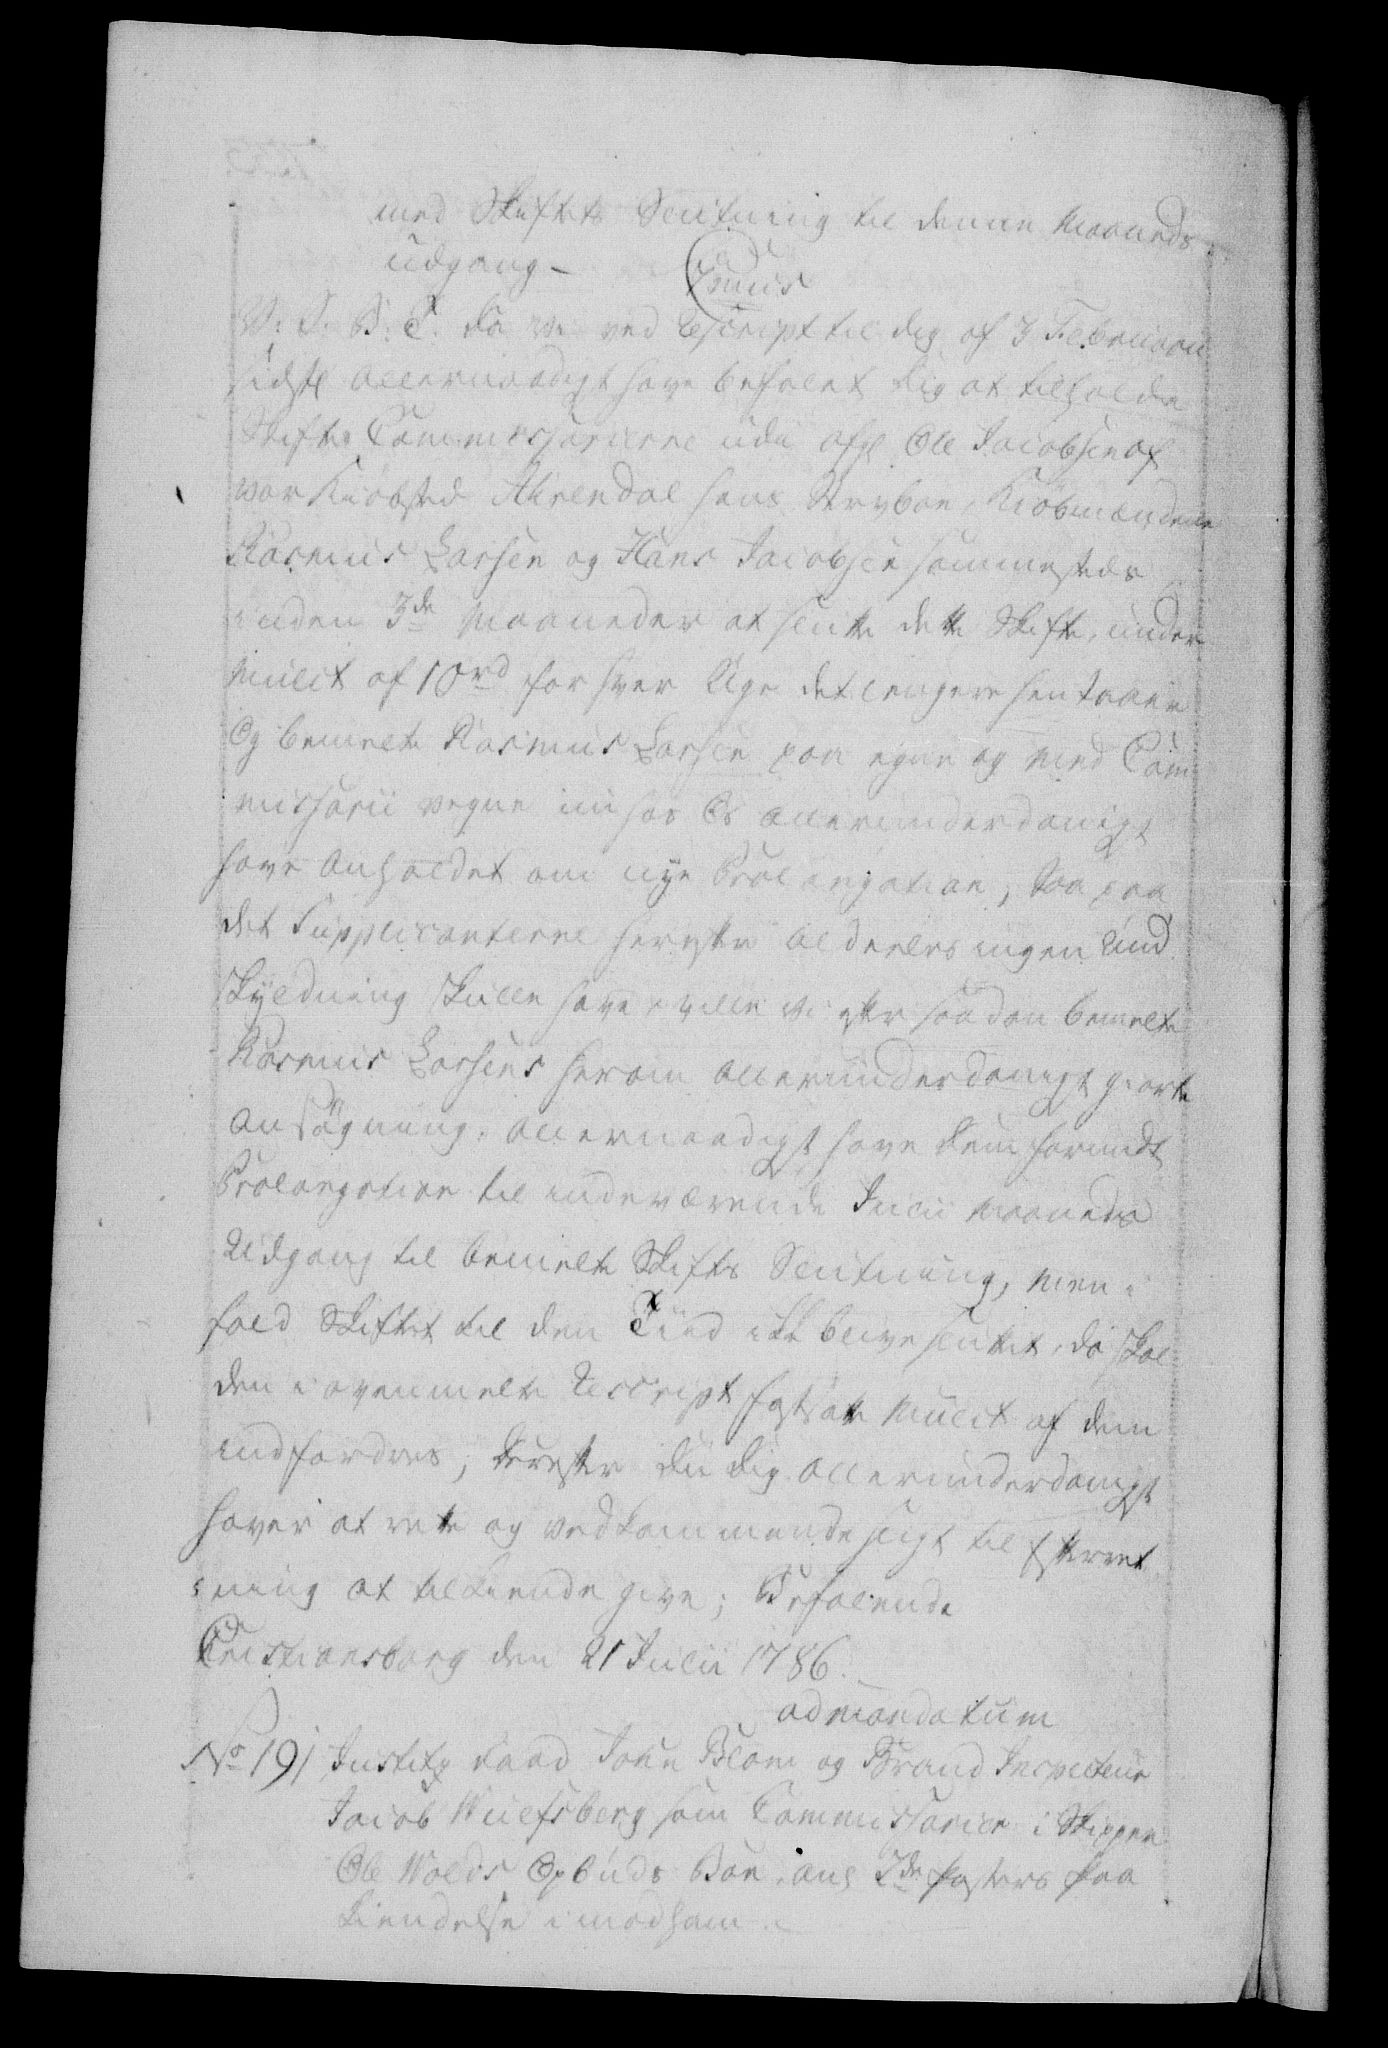 med Skiftets Slutning til denne Maaneds
udgang –
V: G: B: T. Da vi ved Rescript til dig af 3 Februarii
sidstl allernaadigst have befalet dig at tilholde
Skifte Commissarierne udi afg. Ole Jacobsen af
vor Kiöbsted Ahrendal hans Sterboe, Kiöbmændene
Rasmus Larsen og Hans Jacobsen sammesteds
inden 3de Maaneder at slutte dette Skifte, under
Mulct af 10 rd for hver Uge det lengere hentraaer
Og bemelte Rasmus Larsen paa egne og Med Com
missarii vegne nu hos Os allerunderdanigst
have Anholdet om nye Prolongation, saa paa
det Supplicanterne herefter aldeeles ingen Und
skyldning skulle have, ville vi efter saadan bemelte
Rasmus Larsens herom allerunderdanigst giorte
Ansögning, allernaadigst have dem forundt
Prolongation til indeværende Julii Maaneds
Udgang til bemelte Skiftes Slutning, men i
fald Skiftet til den Tiid ikke blive sluttet, da skal
den i ovenmelte Rescript fastsatte Mulct af dem
indfordres, derefter du dig allerunderdanigst
haver at rette og vedkommende sligt til Efterret
ning at tilkiende give; Befalende
Cristiansborg den 21 Julii 1786.
ad mandatum
No 191 Justitz Raad John Blom og Brand Inspecteur
Jacob Wulfsberg som Commissarier i Skipper
Ole Wolds Opbuds Boe, ans 2de Posters Paa
kiendelse imod ham.